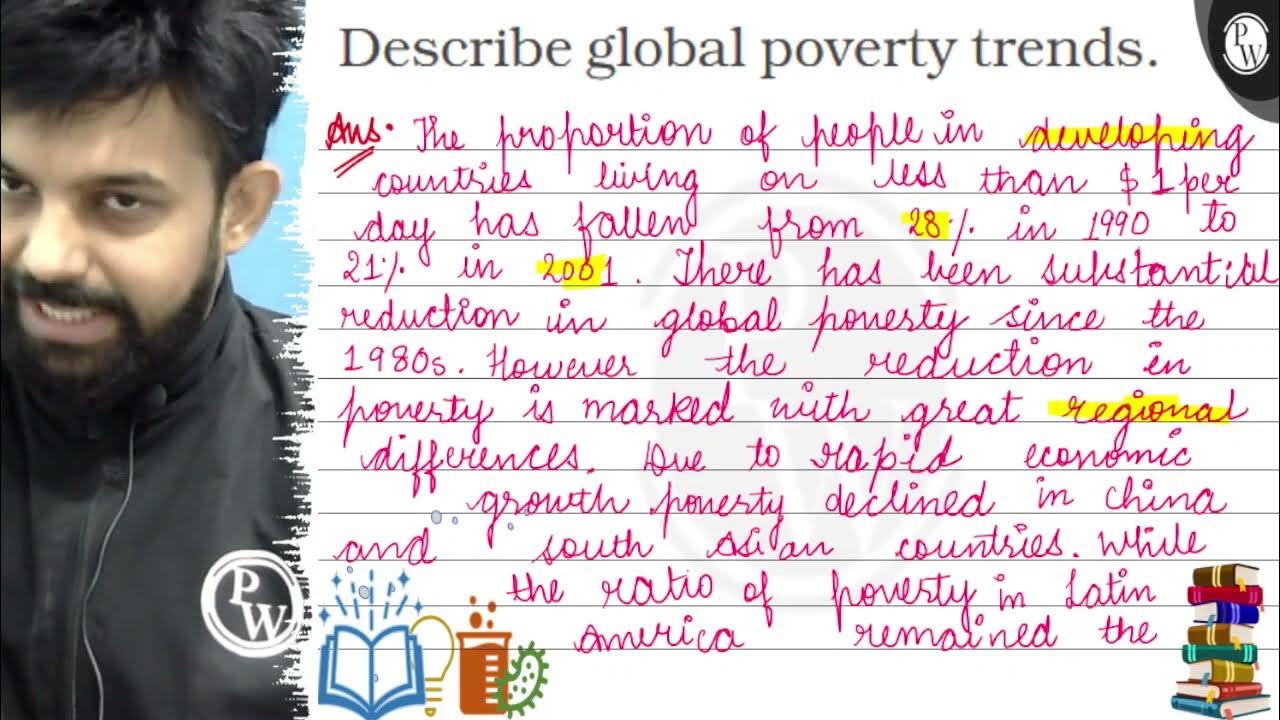 Describe global poverty trends.
PW
Ans. The proportion of people in developing
countries living on less than $1 per
day has fallen from 28% in 1990 to
21% in 2001. There has been substantial
reduction in global poverty since the
1980s. However the reduction in
poverty is marked with great regional
differences. Due to rapid economic
growth poverty declined in China
and south Asian countries. While
the ratio of poverty in Latin
America remained the
PW